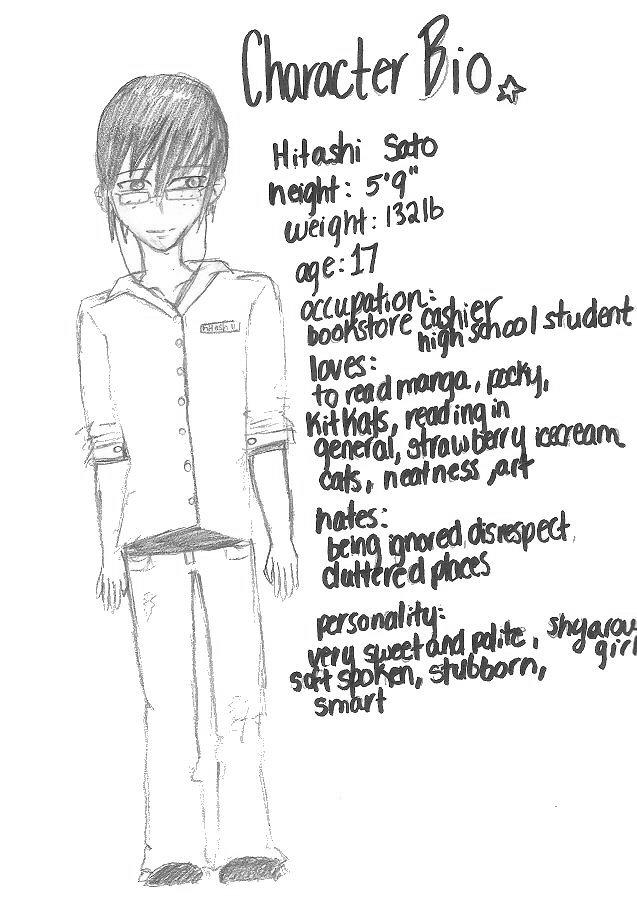 Character Bio
Hitashi Sato
height: 5'9"
weight: 132lb
age: 17
occupation:
bookstore cashier
high school student
loves:
to read manga, pocky,
KitKats, reading in
general, strawberry icecream
cats, neatness, art
hates:
being ignored, disrespect,
cluttered places
personality:
very sweet and polite, shy arou
girl
soft spoken, stubborn,
smart